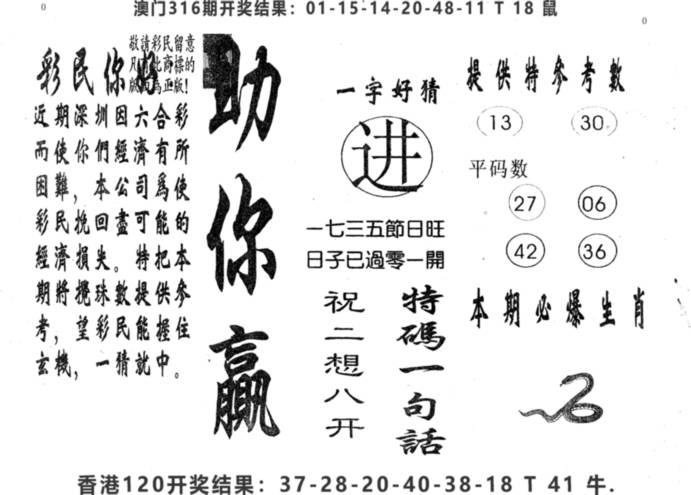 澳门316期开奖结果：01-15-14-20-48-11 T 18 鼠
0
0
敬請彩民留意
彩民你好
版!
近期深圳因六合彩
而使你們經濟有所
困難，本公司爲使
彩民挽回盡可能的
經濟損失。特把本
期將攪珠數提供參
考，望彩民能握住
玄機，一猜就中。
助你贏
一字好猜
进
一七三五節日旺
日子已過零一開
特碼一句話
祝二想八开
提供特參考數
13 30
平码数
27 06
42 36
本期必爆生肖
香港120开奖结果：37-28-20-40-38-18 T 41 牛.